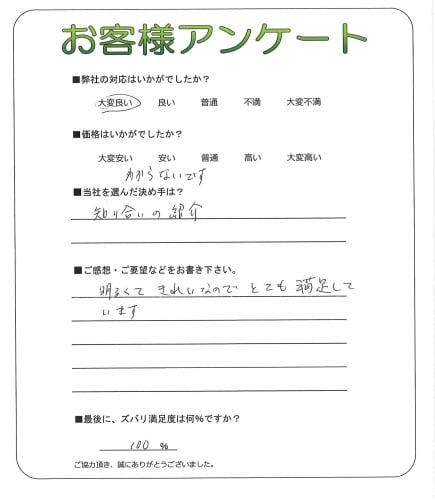 お客様アンケート
■弊社の対応はいかがでしたか？
大変良い 良い 普通 不満 大変不満
■価格はいかがでしたか？
大変安い 安い 普通 高い 大変高い
わからないです
■当社を選んだ決め手は？
知り合いの紹介
■ご感想・ご要望などをお書き下さい。
明るくて きれいなので とても 満足して
います
■最後に、ズバリ満足度は何％ですか？
100 %
ご協力頂き、誠にありがとうございました。